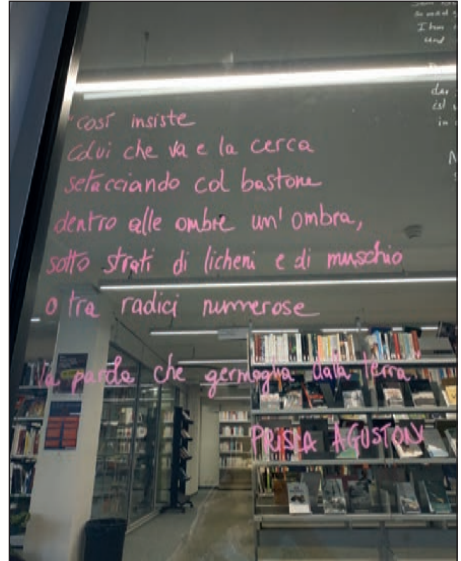 così insiste
colui che va e la cerca
setacciando col bastone
dentro alle ombre un'ombra,
sotto strati di licheni e di muschio
o tra radici numerose
la parola che germoglia dalla terra
PRISCA AGUSTONI